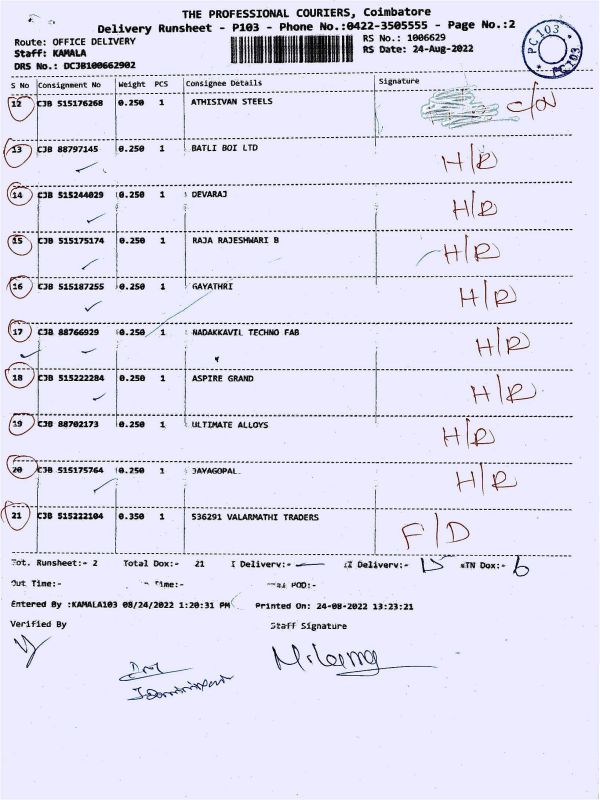 THE PROFESSIONAL COURIERS, Coimbatore
Delivery Runsheet - P103 - Phone No.:0422-3505555 - Page No.:2
Route: OFFICE DELIVERY RS No.: 1006629
Staff: KAMALA RS Date: 24-Aug-2022
DRS No.: DCJB100662902
PC 103
PC 103
S No Consignment No Weight PCS Consignee Details Signature
12 CJB 515176268 0.250 1 ATHISIVAN STEELS
13 CJB 88797145 0.250 1 BATLI BOI LTD H/R
14 CJB 515244029 0.250 1 DEVARAJ H/R
15 CJB 515175174 0.250 1 RAJA RAJESHWARI B H/R
16 CJB 515187255 0.250 1 GAYATHRI H/R
17 CJB 88766929 0.250 1 NADAKKAVIL TECHNO FAB H/R
18 CJB 515222284 0.250 1 ASPIRE GRAND H/R
19 CJB 88702173 0.250 1 ULTIMATE ALLOYS H/R
20 CJB 515175764 0.250 1 JAYAGOPAL H/R
21 CJB 515222104 0.350 1 536291 VALARMATHI TRADERS F/D
Tot. Runsheet:- 2 Total Dox:- 21 I Delivery:- II Delivery:- 15 RTN Dox:- 6
Out Time:- Time:- POD:-
Entered By :KAMALA103 08/24/2022 1:20:31 PM Printed On: 24-08-2022 13:23:21
Verified By Staff Signature